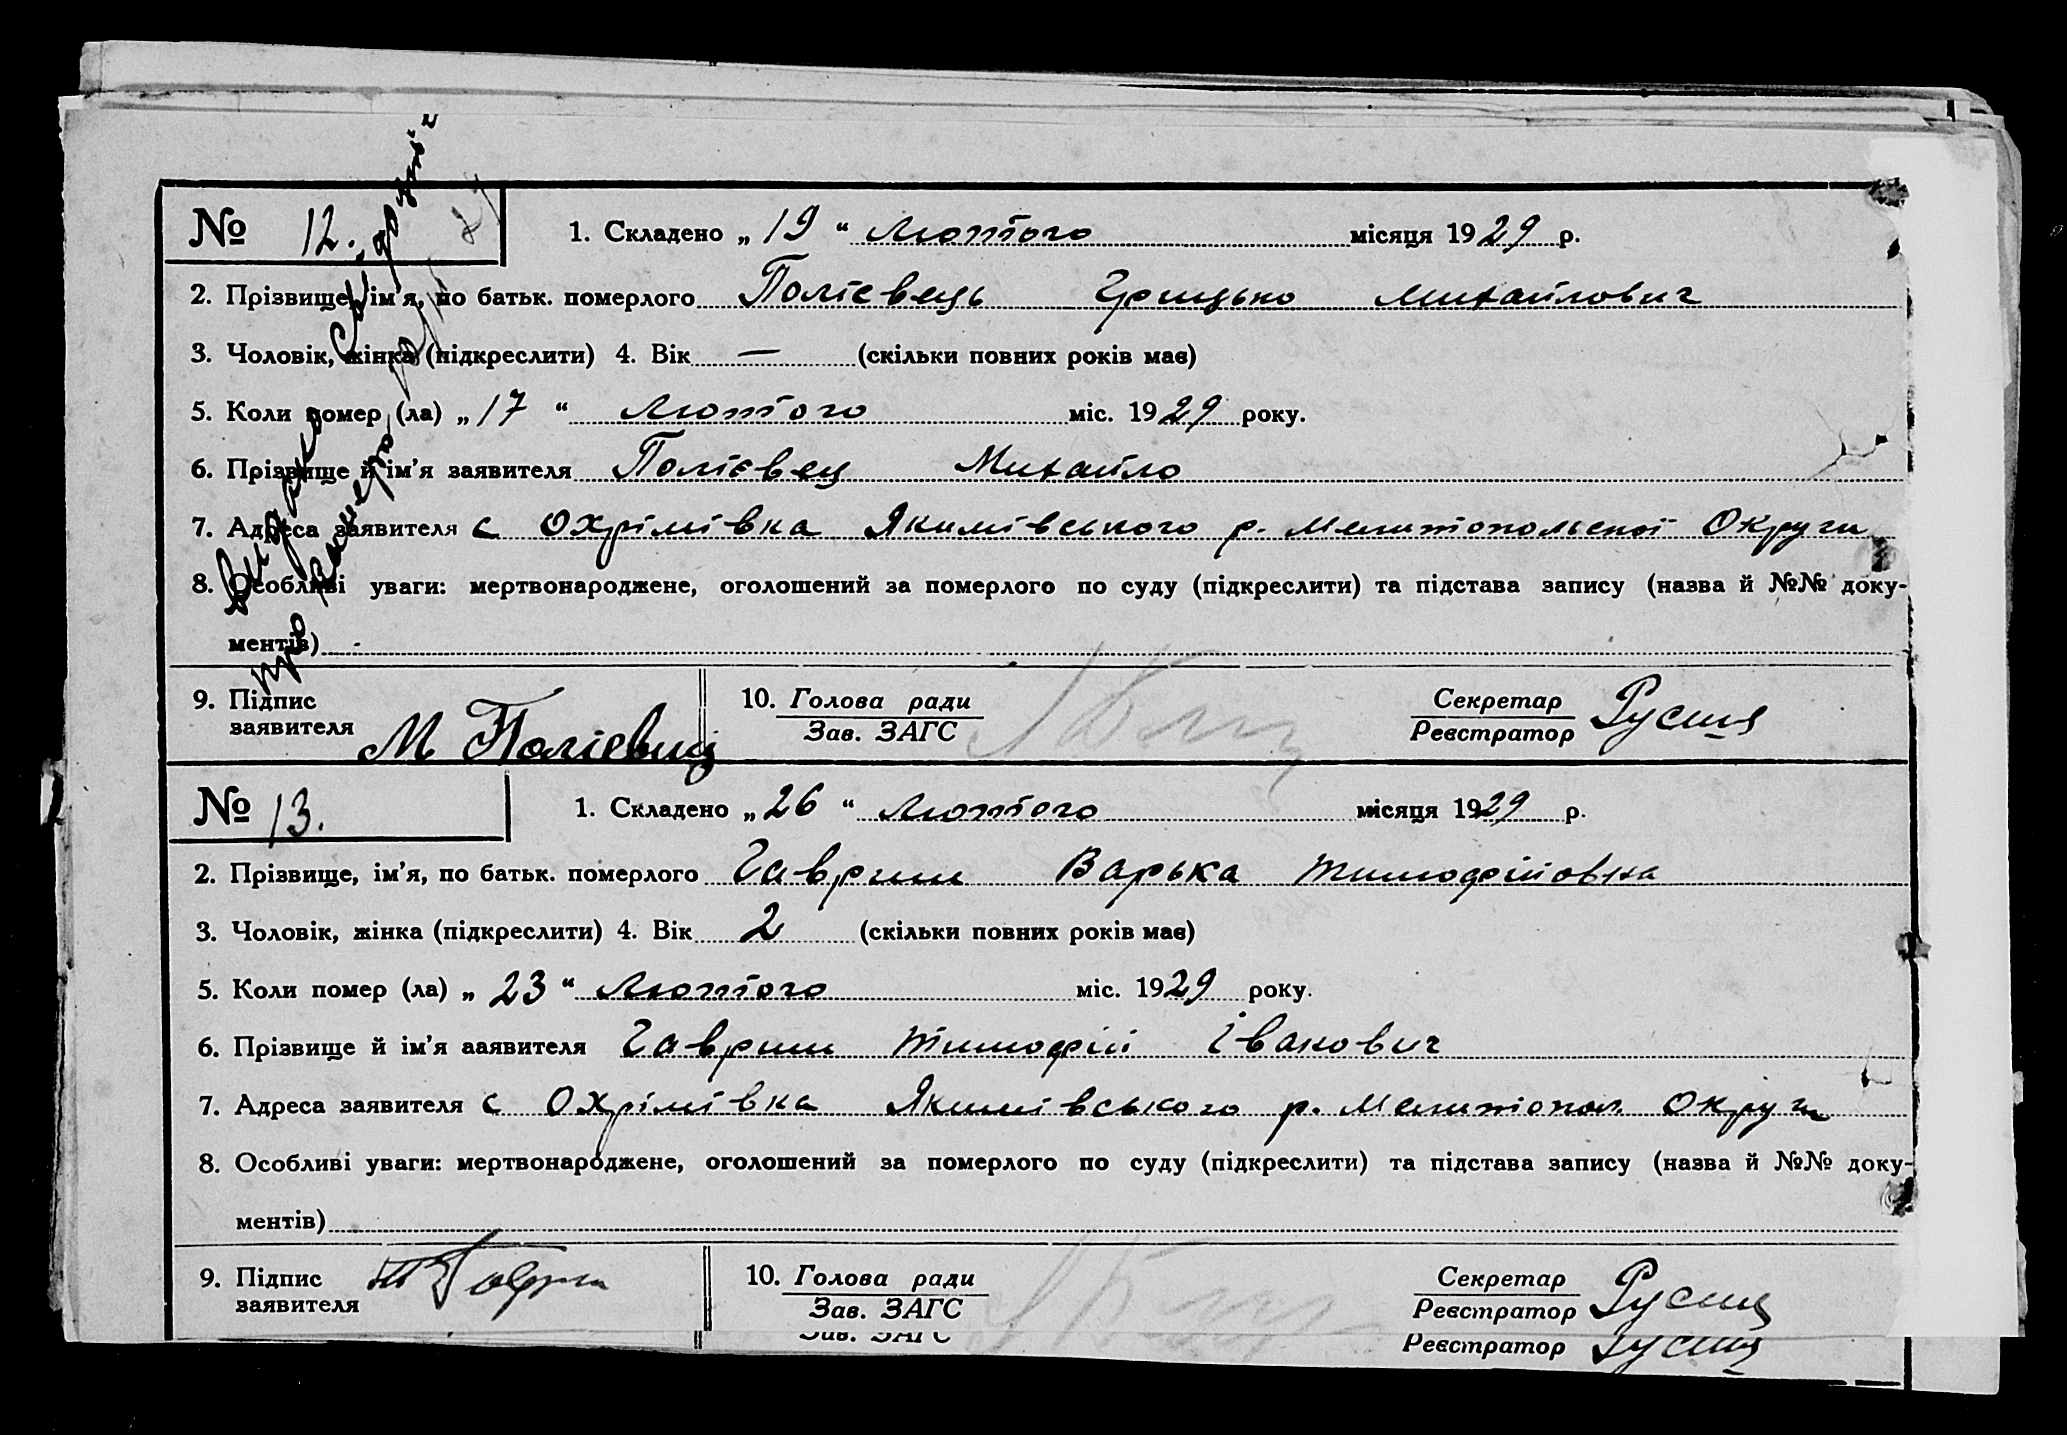 № 12. 1. Складено „ 19 “ лютого місяця 1929 р.
2. Прізвище, ім’я, по батьк. померлого Полієвець Грицько Михайлович
3. Чоловік, жінка (підкреслити) 4. Вік — (скільки повних років має)
5. Коли помер (ла) „ 17 “ лютого міс. 1929 року.
6. Прізвище й ім’я заявителя Полієвец Михайло
7. Адреса заявителя с Охрімівка Якимівського р. Мелитопольскої Округи
8. Особливі уваги: мертвонароджене, оголошений за померлого по суду (підкреслити) та підстава запису (назва й №№ доку-
ментів)
9. Підпис 10. Голова ради Секретар Русин
заявителя М Полієвец Зав. ЗАГС Реєстратор
Видано
про
№ 13. 1. Складено „ 26 “ лютого місяця 1929 р.
2. Прізвище, ім’я, по батьк. померлого Гавриш Варька Тимофійовна
3. Чоловік, жінка (підкреслити) 4. Вік 2 (скільки повних років має)
5. Коли помер (ла) „ 23 “ лютого міс. 1929 року.
6. Прізвище й ім’я заявителя Гавриш Тимофій Іванович
7. Адреса заявителя с Охрімівка Якимівського р. Мелитопол. Округи
8. Особливі уваги: мертвонароджене, оголошений за померлого по суду (підкреслити) та підстава запису (назва й №№ доку-
ментів)
9. Підпис 10. Голова ради Секретар Русин
заявителя Зав. ЗАГС Реєстратор
Зав. ЗАГС Реєстратор Русин